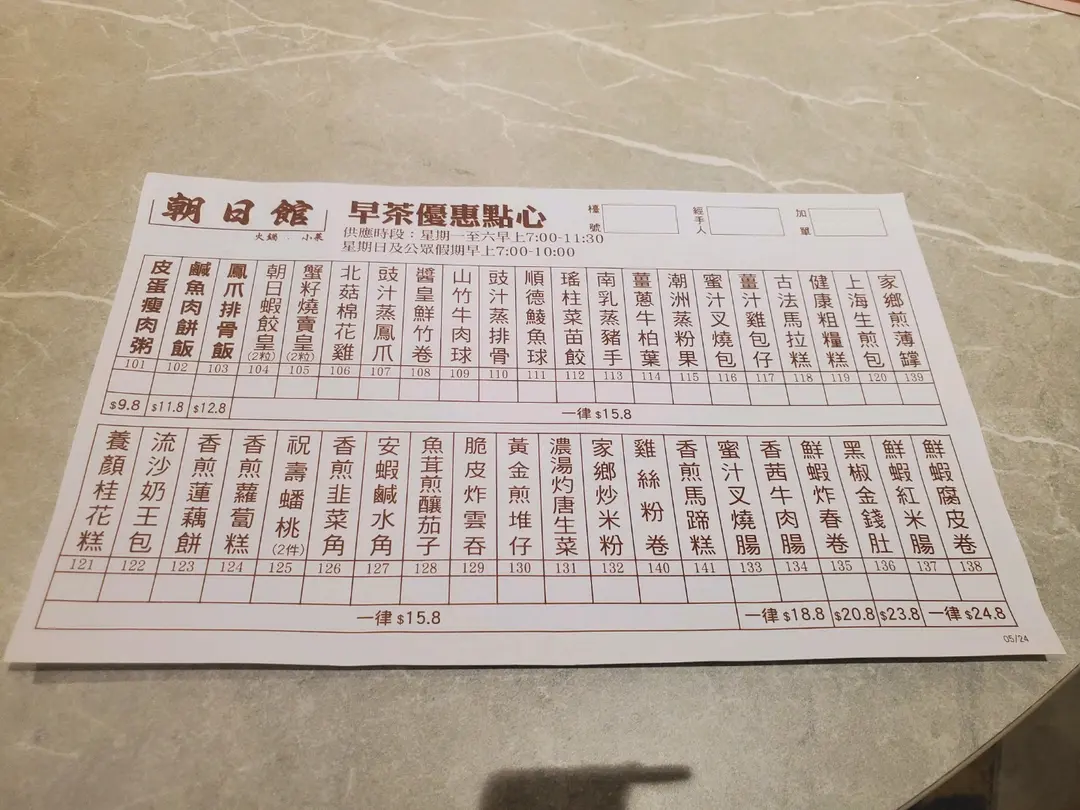 朝日館
火鍋 . 小菜
早茶優惠點心
供應時段：星期一至六早上7:00-11:30
星期日及公眾假期早上7:00-10:00
檯號
經手人
加單
皮蛋瘦肉粥
鹹魚肉餅飯
鳳爪排骨飯
朝日蝦餃皇(2粒)
蟹籽燒賣皇(2粒)
北菇棉花雞
豉汁蒸鳳爪
醬皇鮮竹卷
山竹牛肉球
豉汁蒸排骨
順德鯪魚球
瑤柱菜苗餃
南乳蒸豬手
薑蔥牛柏葉
潮洲蒸粉果
蜜汁叉燒包
薑汁雞包仔
古法馬拉糕
健康粗糧糕
上海生煎包
家鄉煎薄罉
101 102 103 104 105 106 107 108 109 110 111 112 113 114 115 116 117 118 119 120 139
$9.8 $11.8 $12.8 一律 $15.8
養顏桂花糕
流沙奶王包
香煎蓮藕餅
香煎蘿蔔糕
祝壽蟠桃(2件)
香煎韭菜角
安蝦鹹水角
魚茸煎釀茄子
脆皮炸雲吞
黃金煎堆仔
濃湯灼唐生菜
家鄉炒米粉
雞絲粉卷
香煎馬蹄糕
蜜汁叉燒腸
香茜牛肉腸
鮮蝦炸春卷
黑椒金錢肚
鮮蝦紅米腸
鮮蝦腐皮卷
121 122 123 124 125 126 127 128 129 130 131 132 140 141 133 134 135 136 137 138
一律 $15.8 一律 $18.8 $20.8 $23.8 一律 $24.8
05/24